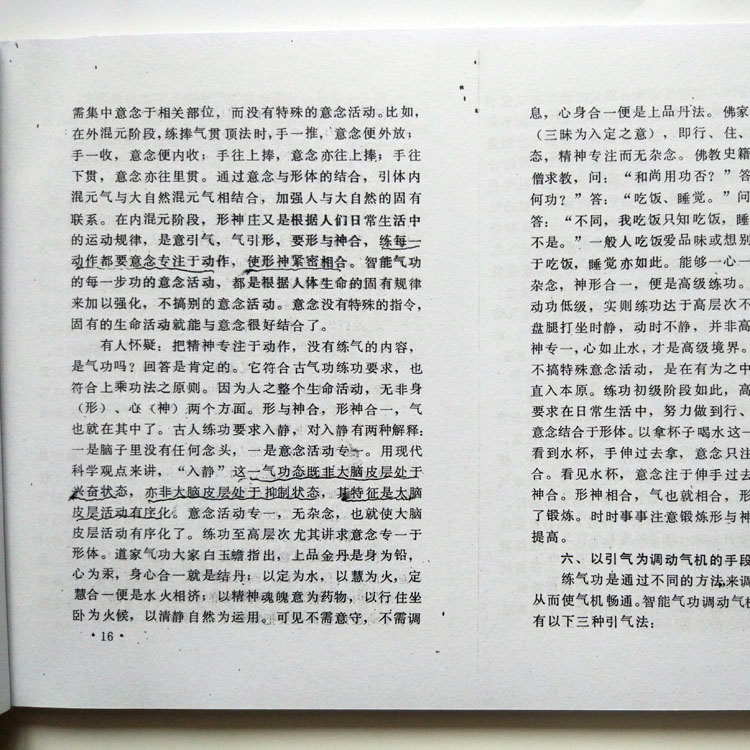 需集中意念于相关部位，而没有特殊的意念活动。比如，
在外混元阶段，练捧气贯顶法时，手一推，意念便外放；
手一收，意念便内收；手往上捧，意念亦往上捧；手往
下贯，意念亦往里贯。通过意念与形体的结合，引体内
混元气与大自然混元气相结合，加强人与大自然的固有
联系。在内混元阶段，形神庄又是根据人们日常生活中
的运动规律，是意引气，气引形，要形与神合，练每一
动作都要意念专注于动作，使形神紧密相合。智能气功
的每一步功的意念活动，都是根据人体生命的固有规律
来加以强化，不搞别的意念活动。意念没有特殊的指令，
固有的生命活动就能与意念很好结合了。
有人怀疑：把精神专注于动作，没有练气的内容，
是气功吗？回答是肯定的。它符合古气功练功要求，也
符合上乘功法之原则。因为人之整个生命活动，无非身
（形）、心（神）两个方面。形与神合，形神合一，气
也就在其中了。古人练功要求入静，对入静有两种解释：
一是脑子里没有任何念头，一是意念活动专一。用现代
科学观点来讲，“入静”这一气功态既非大脑皮层处于
兴奋状态，亦非大脑皮层处于抑制状态，其特征是大脑
皮层活动有序化。意念活动专一，无杂念，也就使大脑
皮层活动有序化了。练功至高层次尤其讲求意念专一于
形体。道家气功大家白玉蟾指出，上品金丹是身为铅，
心为汞，身心合一就是结丹；以定为水，以慧为火，定
慧合一便是水火相济；以精神魂魄意为药物，以行住坐
卧为火候，以清静自然为运用。可见不需意守，不需调
·16·
息，心身合一便是上品丹法。佛家
（三昧为入定之意），即行、住、
态，精神专注而无杂念。佛教史籍
僧求教，问：“和尚用功否？”答
何功？”答：“吃饭、睡觉。”问
答：“不同，我吃饭只知吃饭，睡
不是。”一般人吃饭爱品味或想别
于吃饭，睡觉亦如此。能够一心一
杂念，神形合一，便是高级练功。
动功低级，实则练功达于高层次不
盘腿打坐时静，动时不静，并非高
神专一，心如止水，才是高级境界。
不搞特殊意念活动，是在有为之中
直入本原。练功初级阶段如此，高
要求在日常生活中，努力做到行、
意念结合于形体。以拿杯子喝水这一
看到水杯，手伸过去拿，意念只注
合。看见水杯，意念注于伸手过去
神合。形神相合，气也就相合，形
了锻炼。时时事事注意锻炼形与神
提高。
六、以引气为调动气机的手段
练气功是通过不同的方法来调
从而使气机畅通。智能气功调动气机
有以下三种引气法：